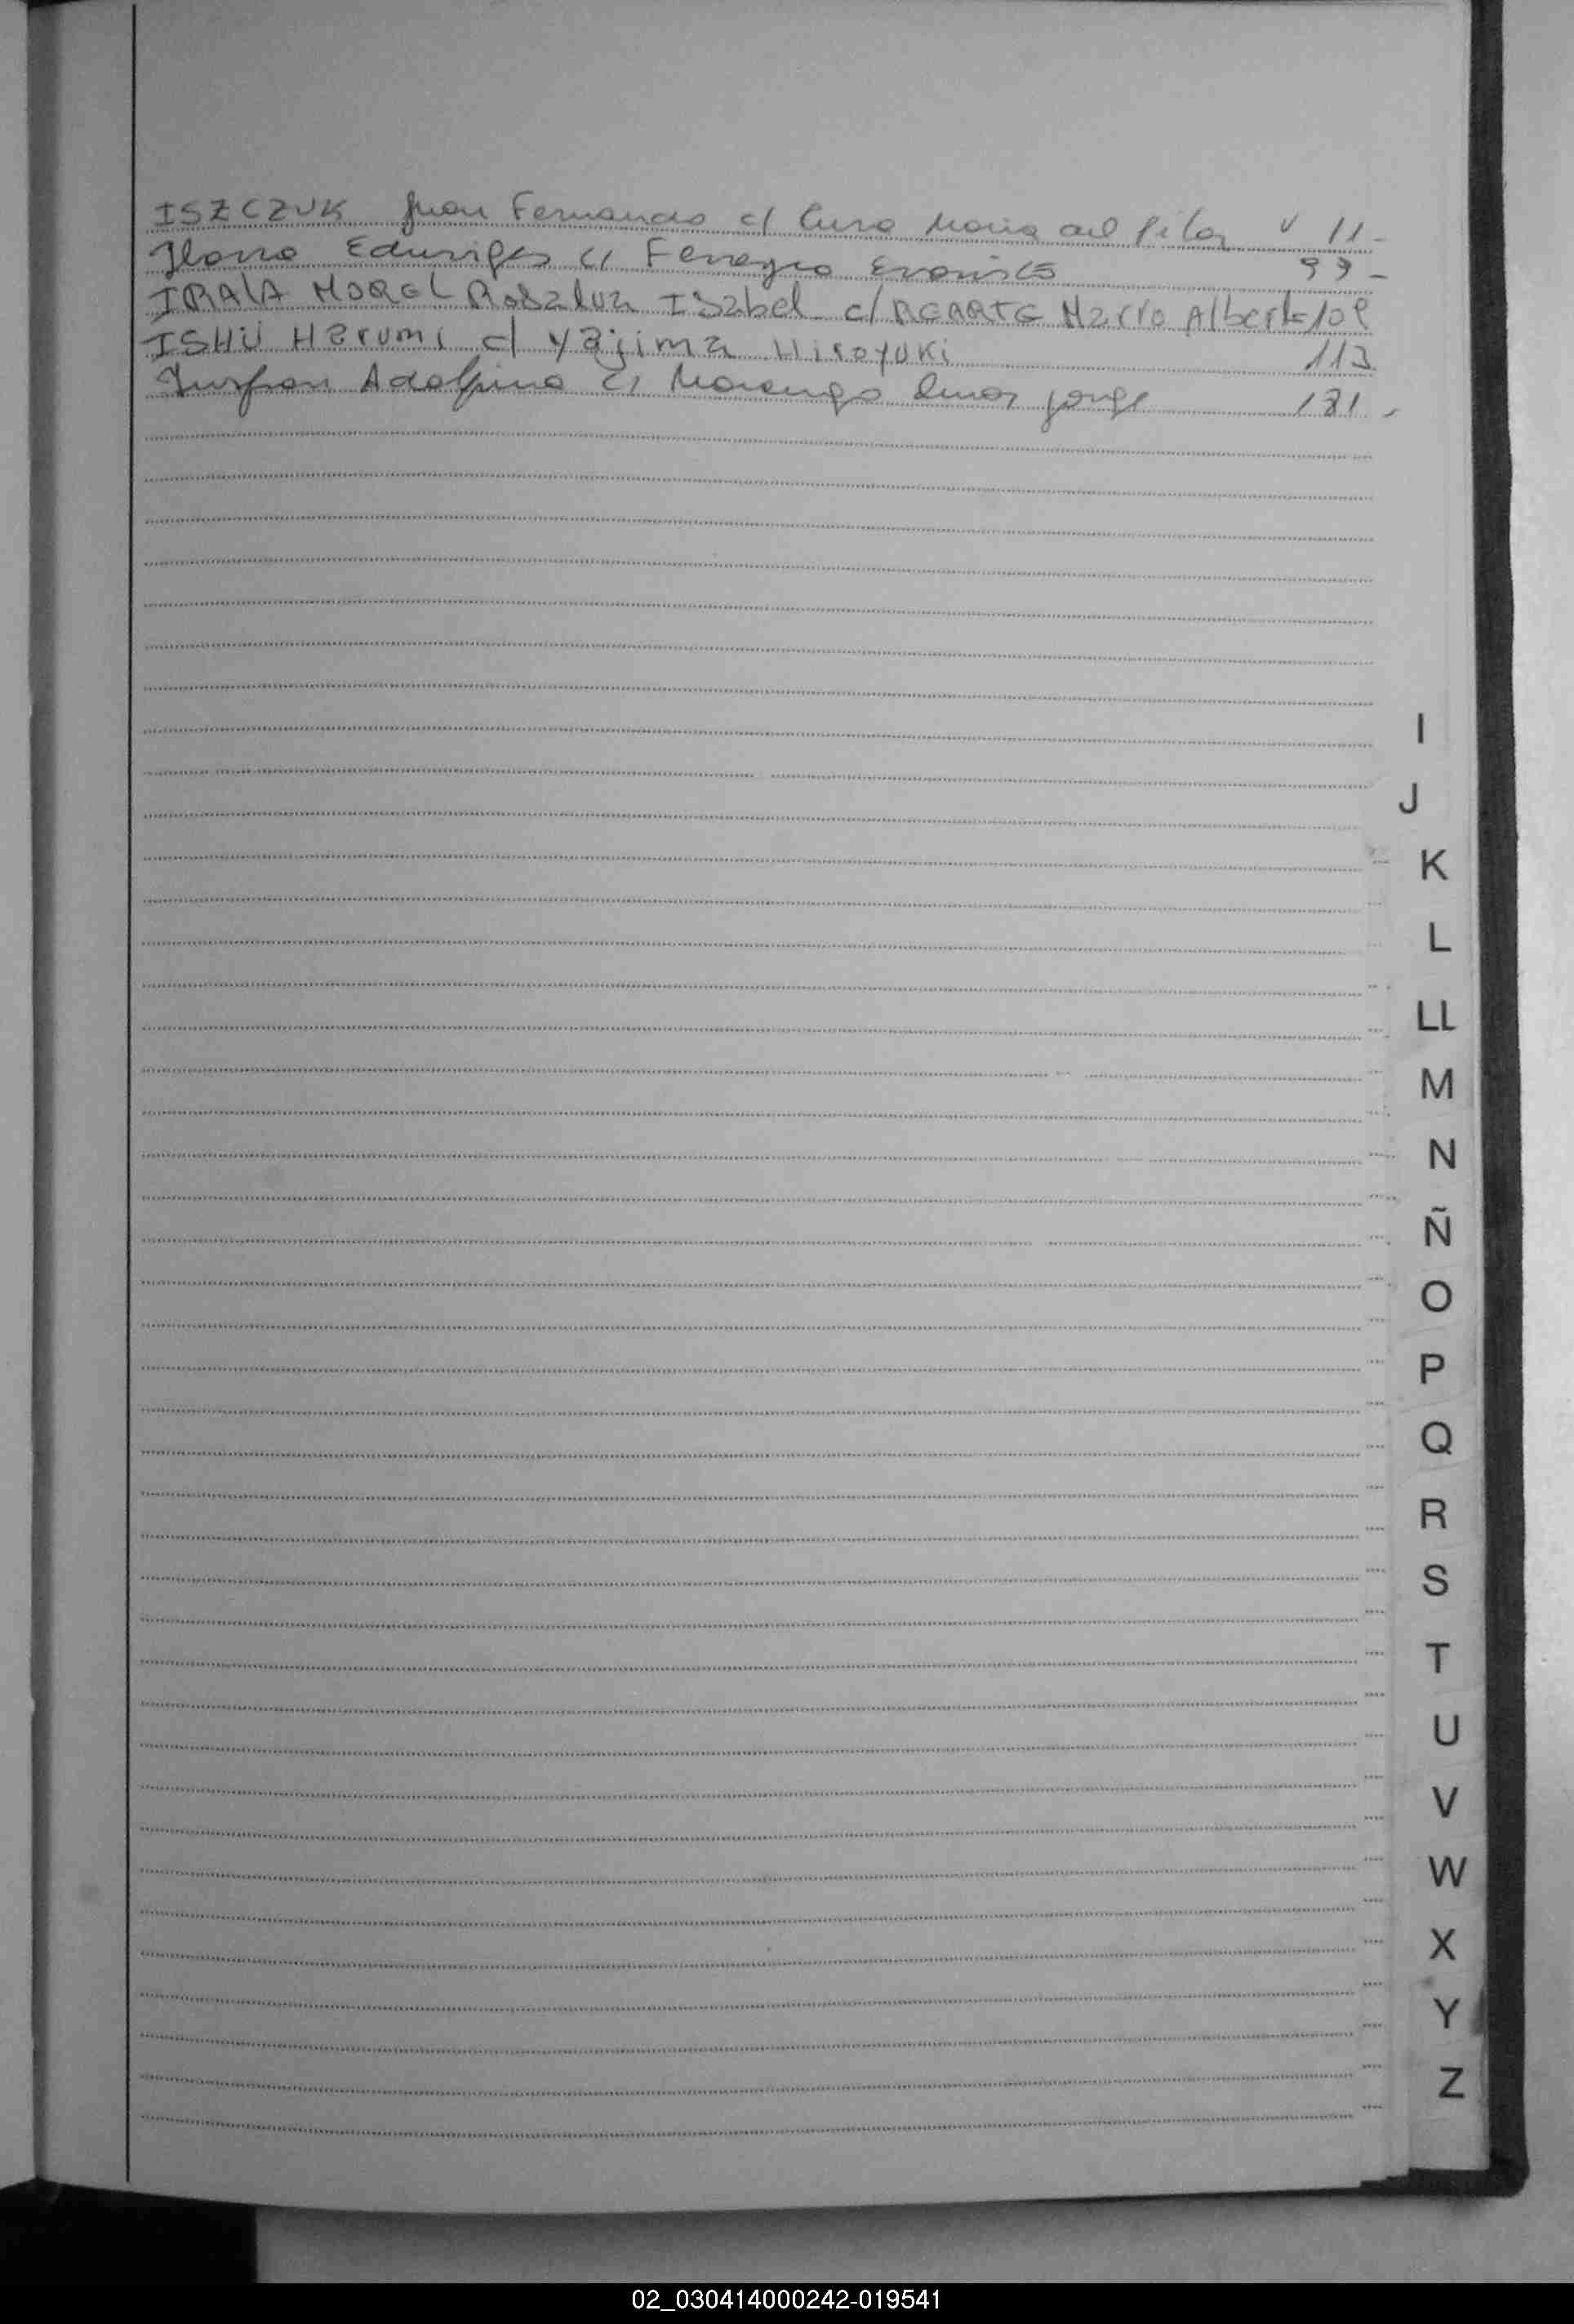 ISZCZUK Juan Fernando c/ Cura Maria del Pilar v 11-
Edurifes c/ Ferreyra Evaristo 99-
IRALA MOREL Rosalva Isabel c/ Mario Alberto 101
ISHII Harumi c/ Yajima Hiroyuki 113
Adolfina c/ Marengo Omar Jorge 181-
I
J
K
L
LL
M
N
Ñ
O
P
Q
R
S
T
U
V
W
X
Y
Z
02_030414000242-019541